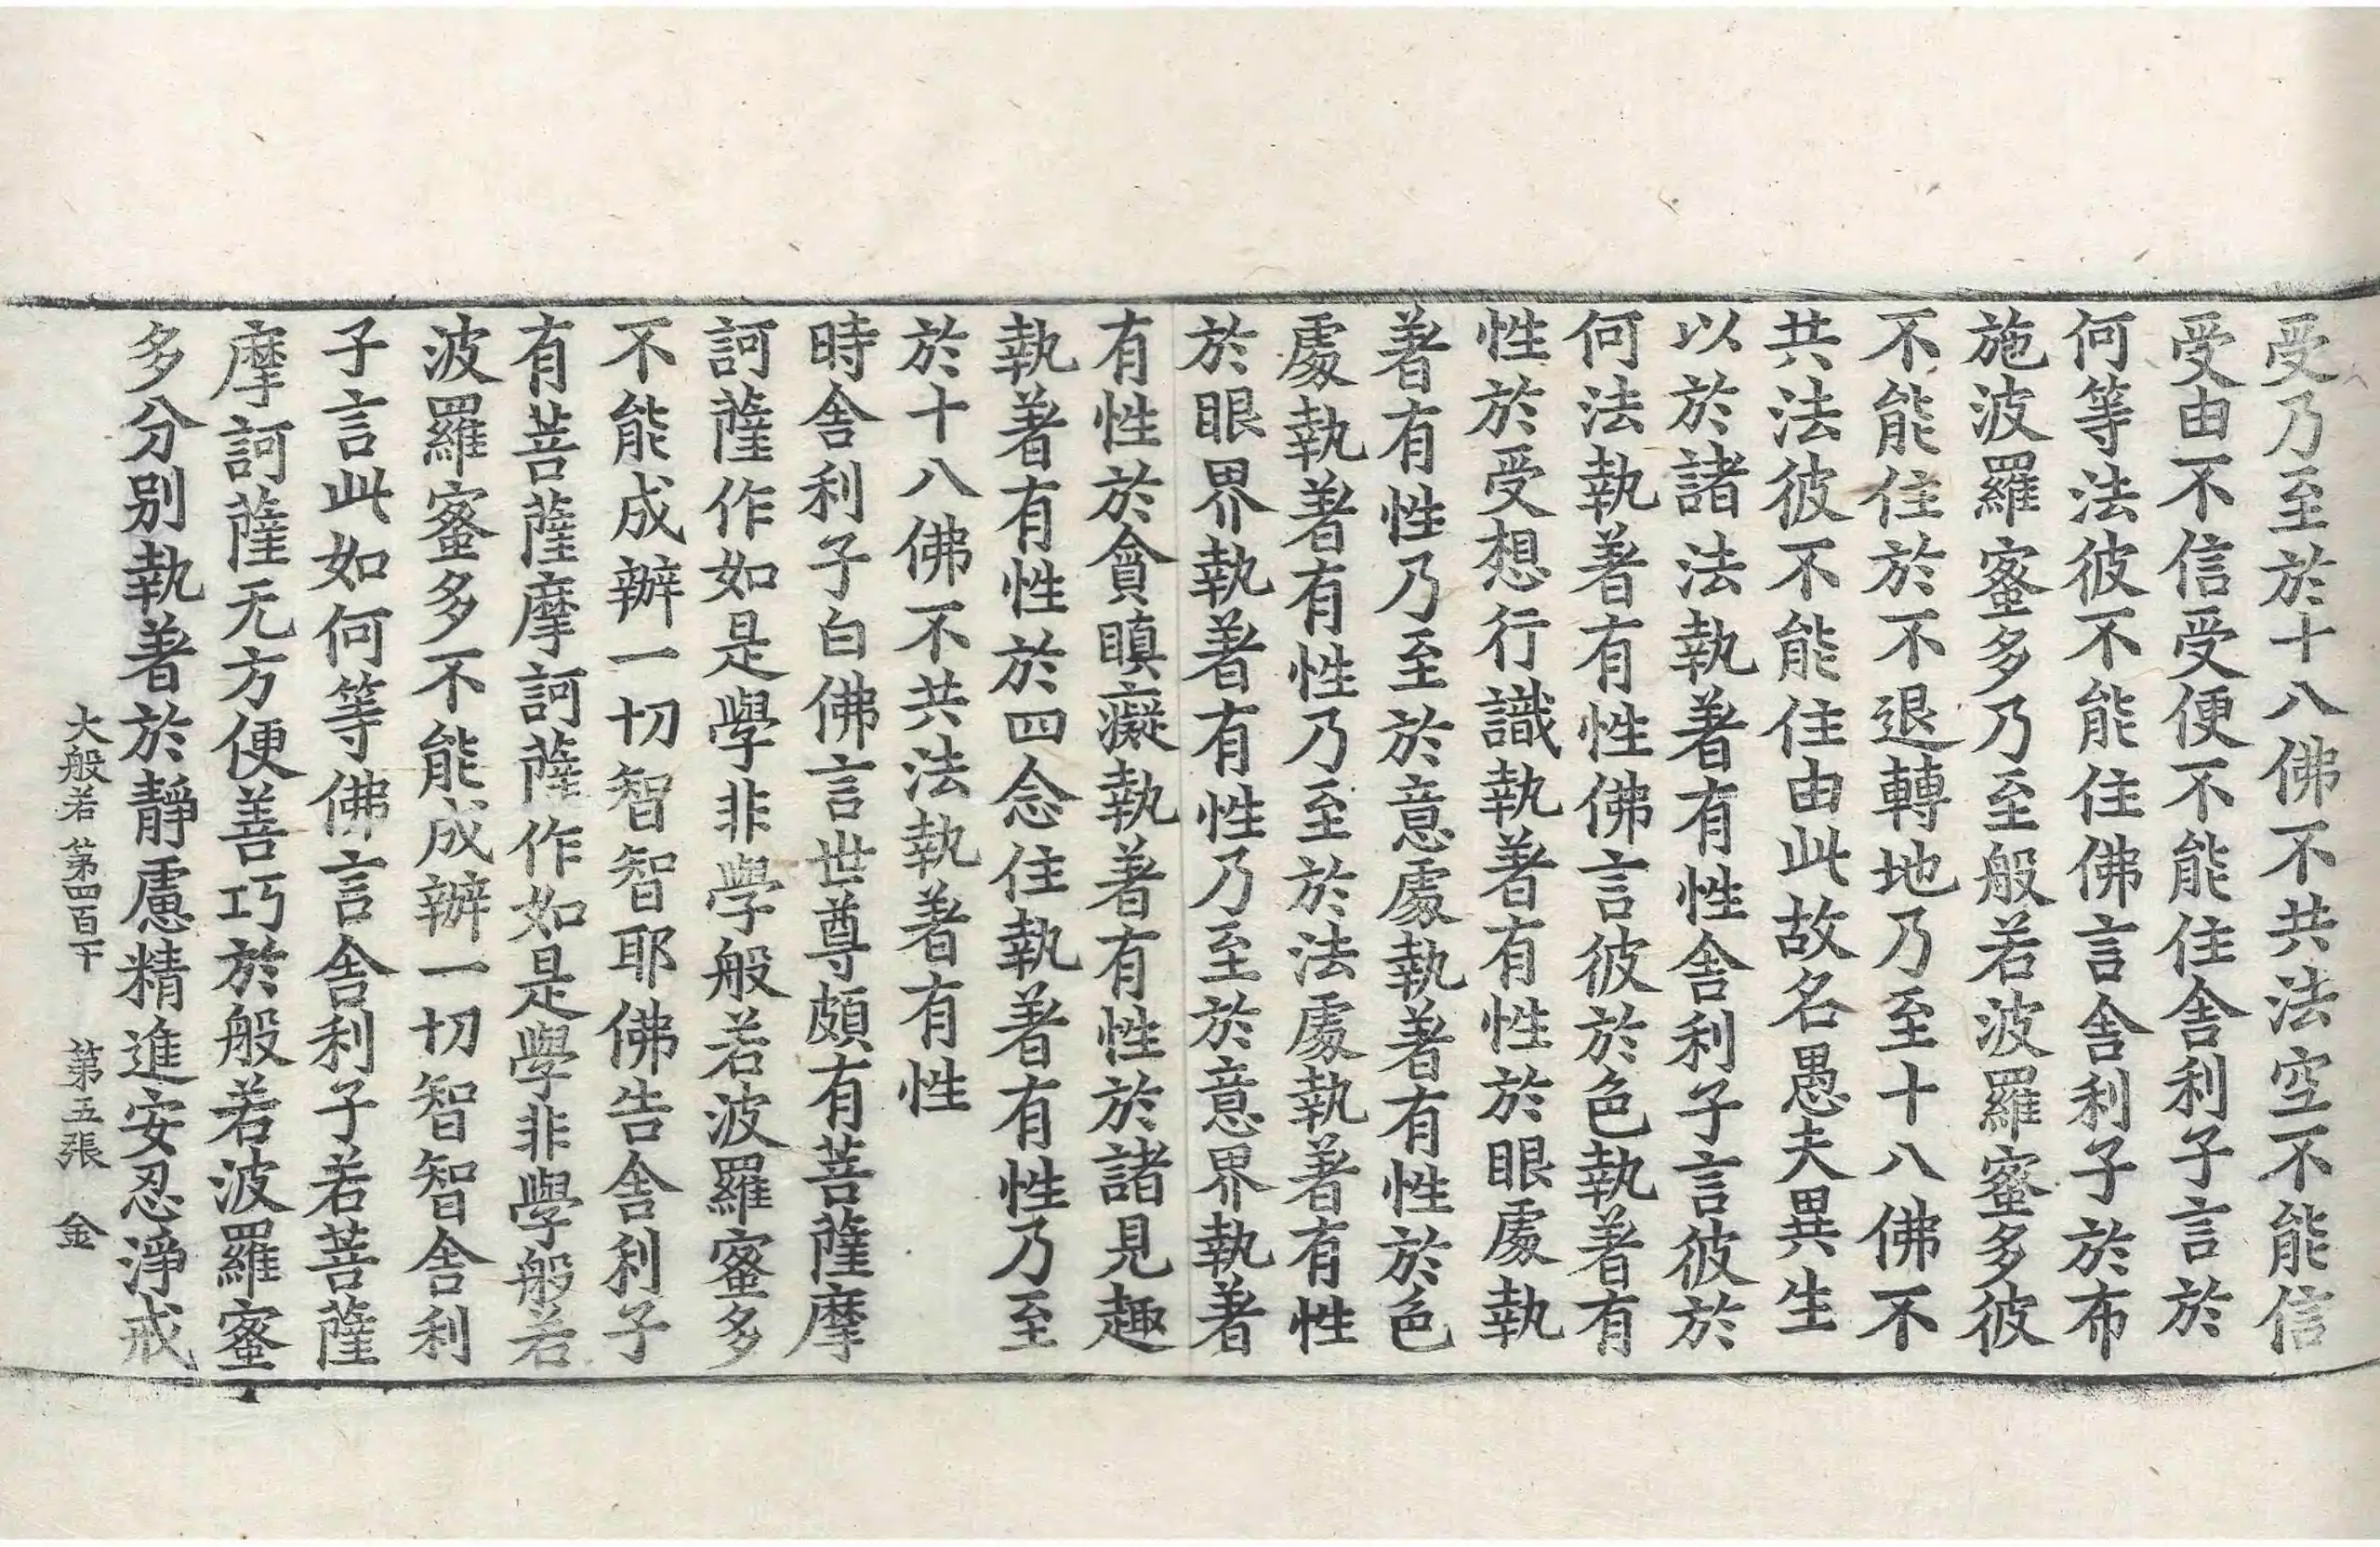 受乃至於十八佛不共法空不能信
受由不信受便不能住舍利子言於
何等法彼不能住佛言舍利子於布
施波羅蜜多乃至般若波羅蜜多彼
不能住於不退轉地乃至十八佛不
共法彼不能住由此故名愚夫異生
以於諸法執著有性舍利子言彼於
何法執著有性佛言彼於色執著有
性於受想行識執著有性於眼處執
著有性乃至於意處執著有性於色
處執著有性乃至於法處執著有性
於眼界執著有性乃至於意界執著
有性於貪瞋癡執著有性於諸見趣
執著有性於四念住執著有性乃至
於十八佛不共法執著有性
時舍利子白佛言世尊頗有菩薩摩
訶薩作如是學非學般若波羅蜜多
不能成辦一切智智耶佛告舍利子
有菩薩摩訶薩作如是學非學般若
波羅蜜多不能成辦一切智智舍利
子言此如何等佛言舍利子若菩薩
摩訶薩无方便善巧於般若波羅蜜
多分別執著於靜慮精進安忍淨戒
大般若 第四百下 第五張 金